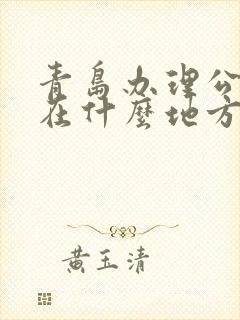 青島办理公
在什麼地方
黄玉清